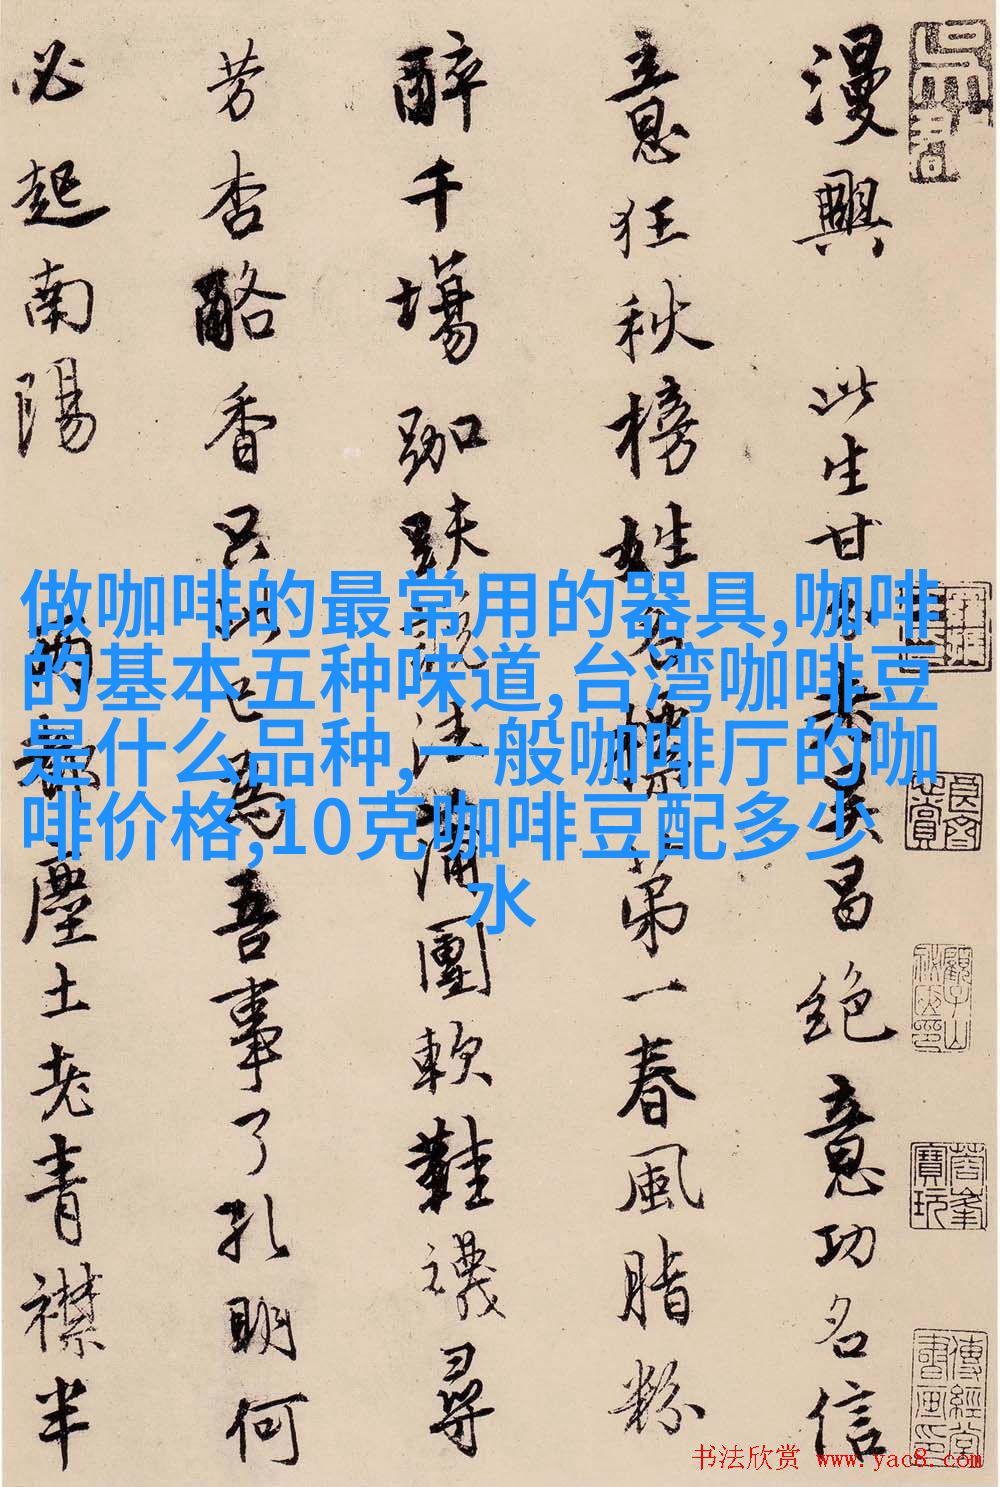 漫興 此生甘分昌絕意功名信
意狂秋榜姓名標第一春風脂粉
醉千場跏趺說法蒲團軟鞋襪尋
芳杏酪香只此已為吾事了孔明何
必起南陽 塵土老青襟半
做咖啡的最常用的器具,咖啡
的基本五种味道,台湾咖啡豆
是什么品种,一般咖啡厅的咖
啡价格,10克咖啡豆配多少
水
书法欣赏 www.yac8.com